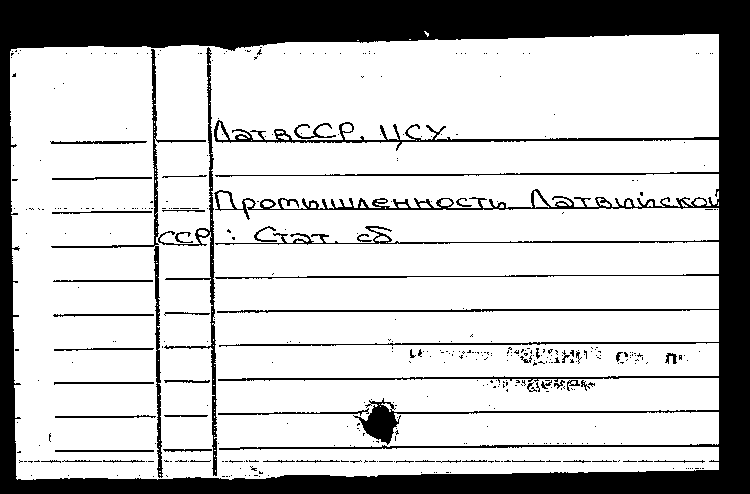 ЛатвССР. ЦСУ.
Промышленность Латвийской
ССР : Стат. сб.
изданий см. по